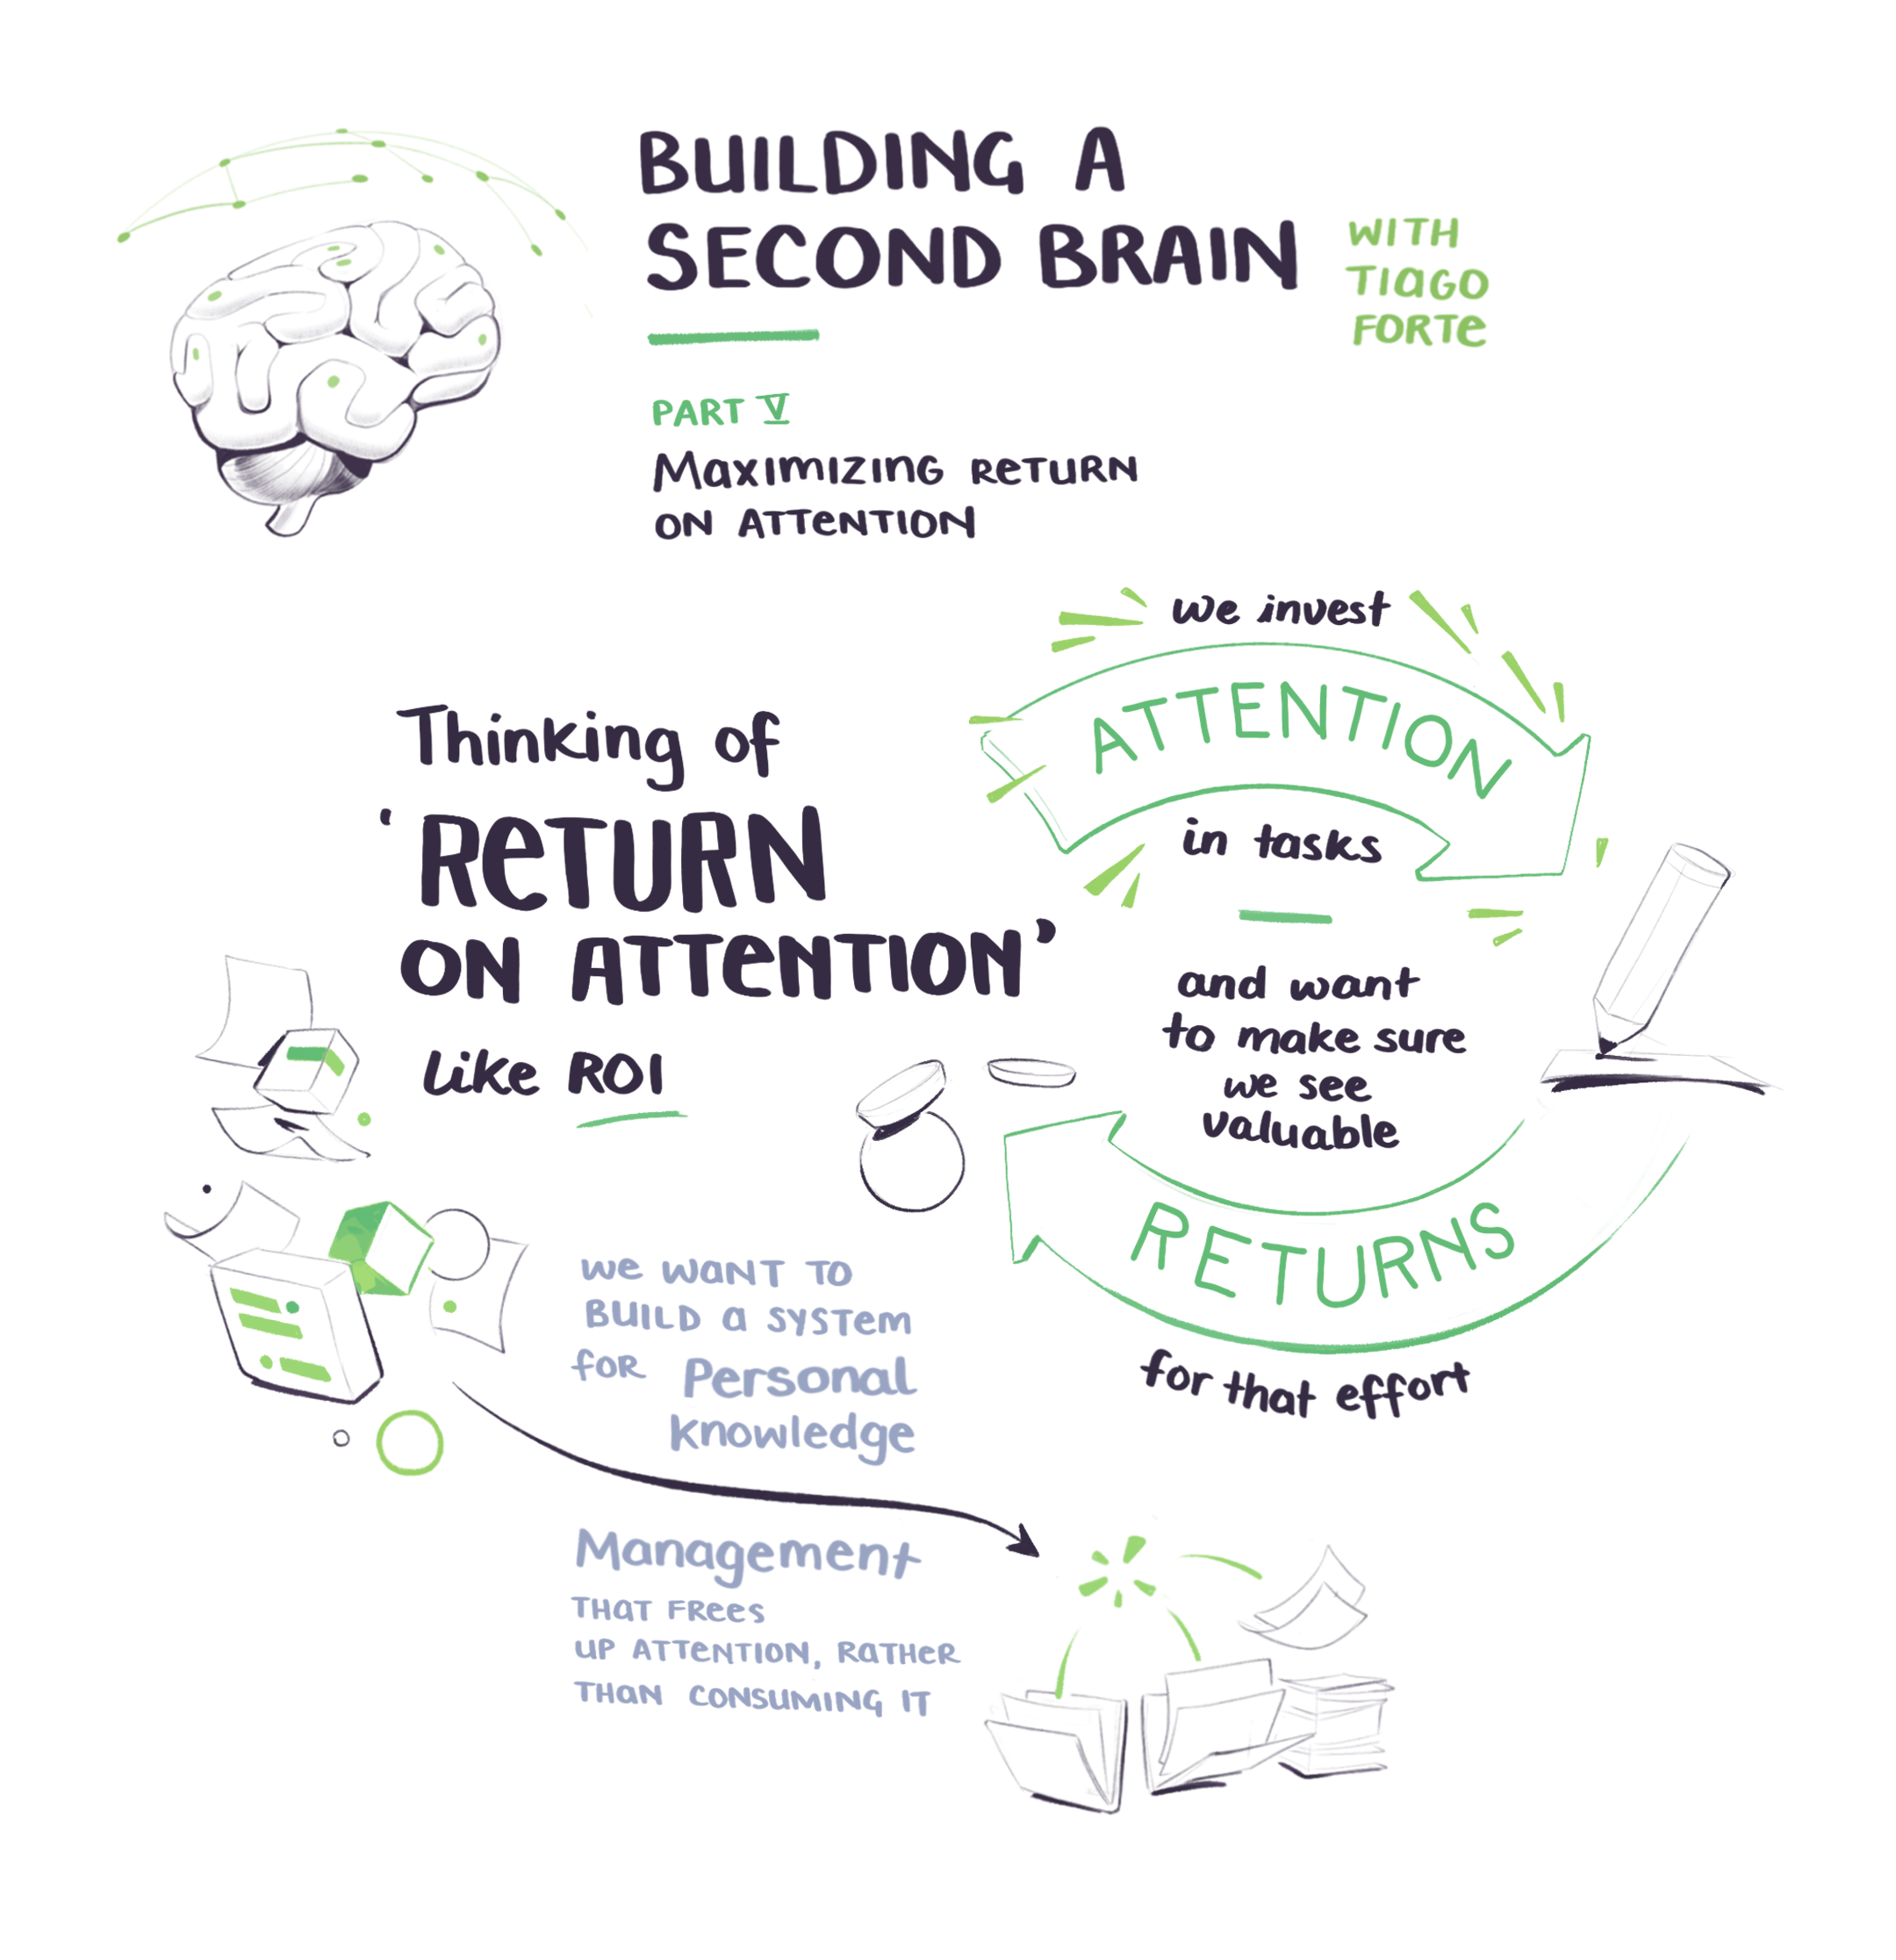 BUILDING A
SECOND BRAIN
WITH
TIAGO
FORTE
PART V
Maximizing Return
on Attention
Thinking of
'Return
on Attention'
like ROI
we invest
ATTENTION
in tasks
and want
to make sure
we see
valuable
RETURNS
for that effort
We want to
build a system
for Personal
knowledge
Management
that frees
up attention, rather
than consuming it